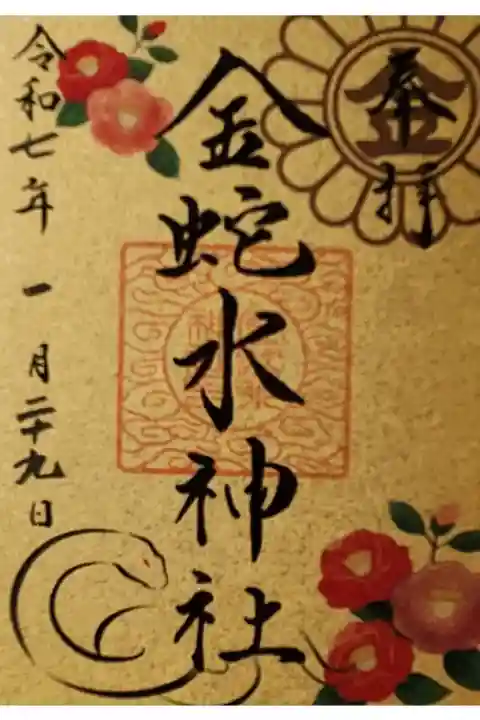 奉拝
金
金蛇水神社
令和七年一月二十九日